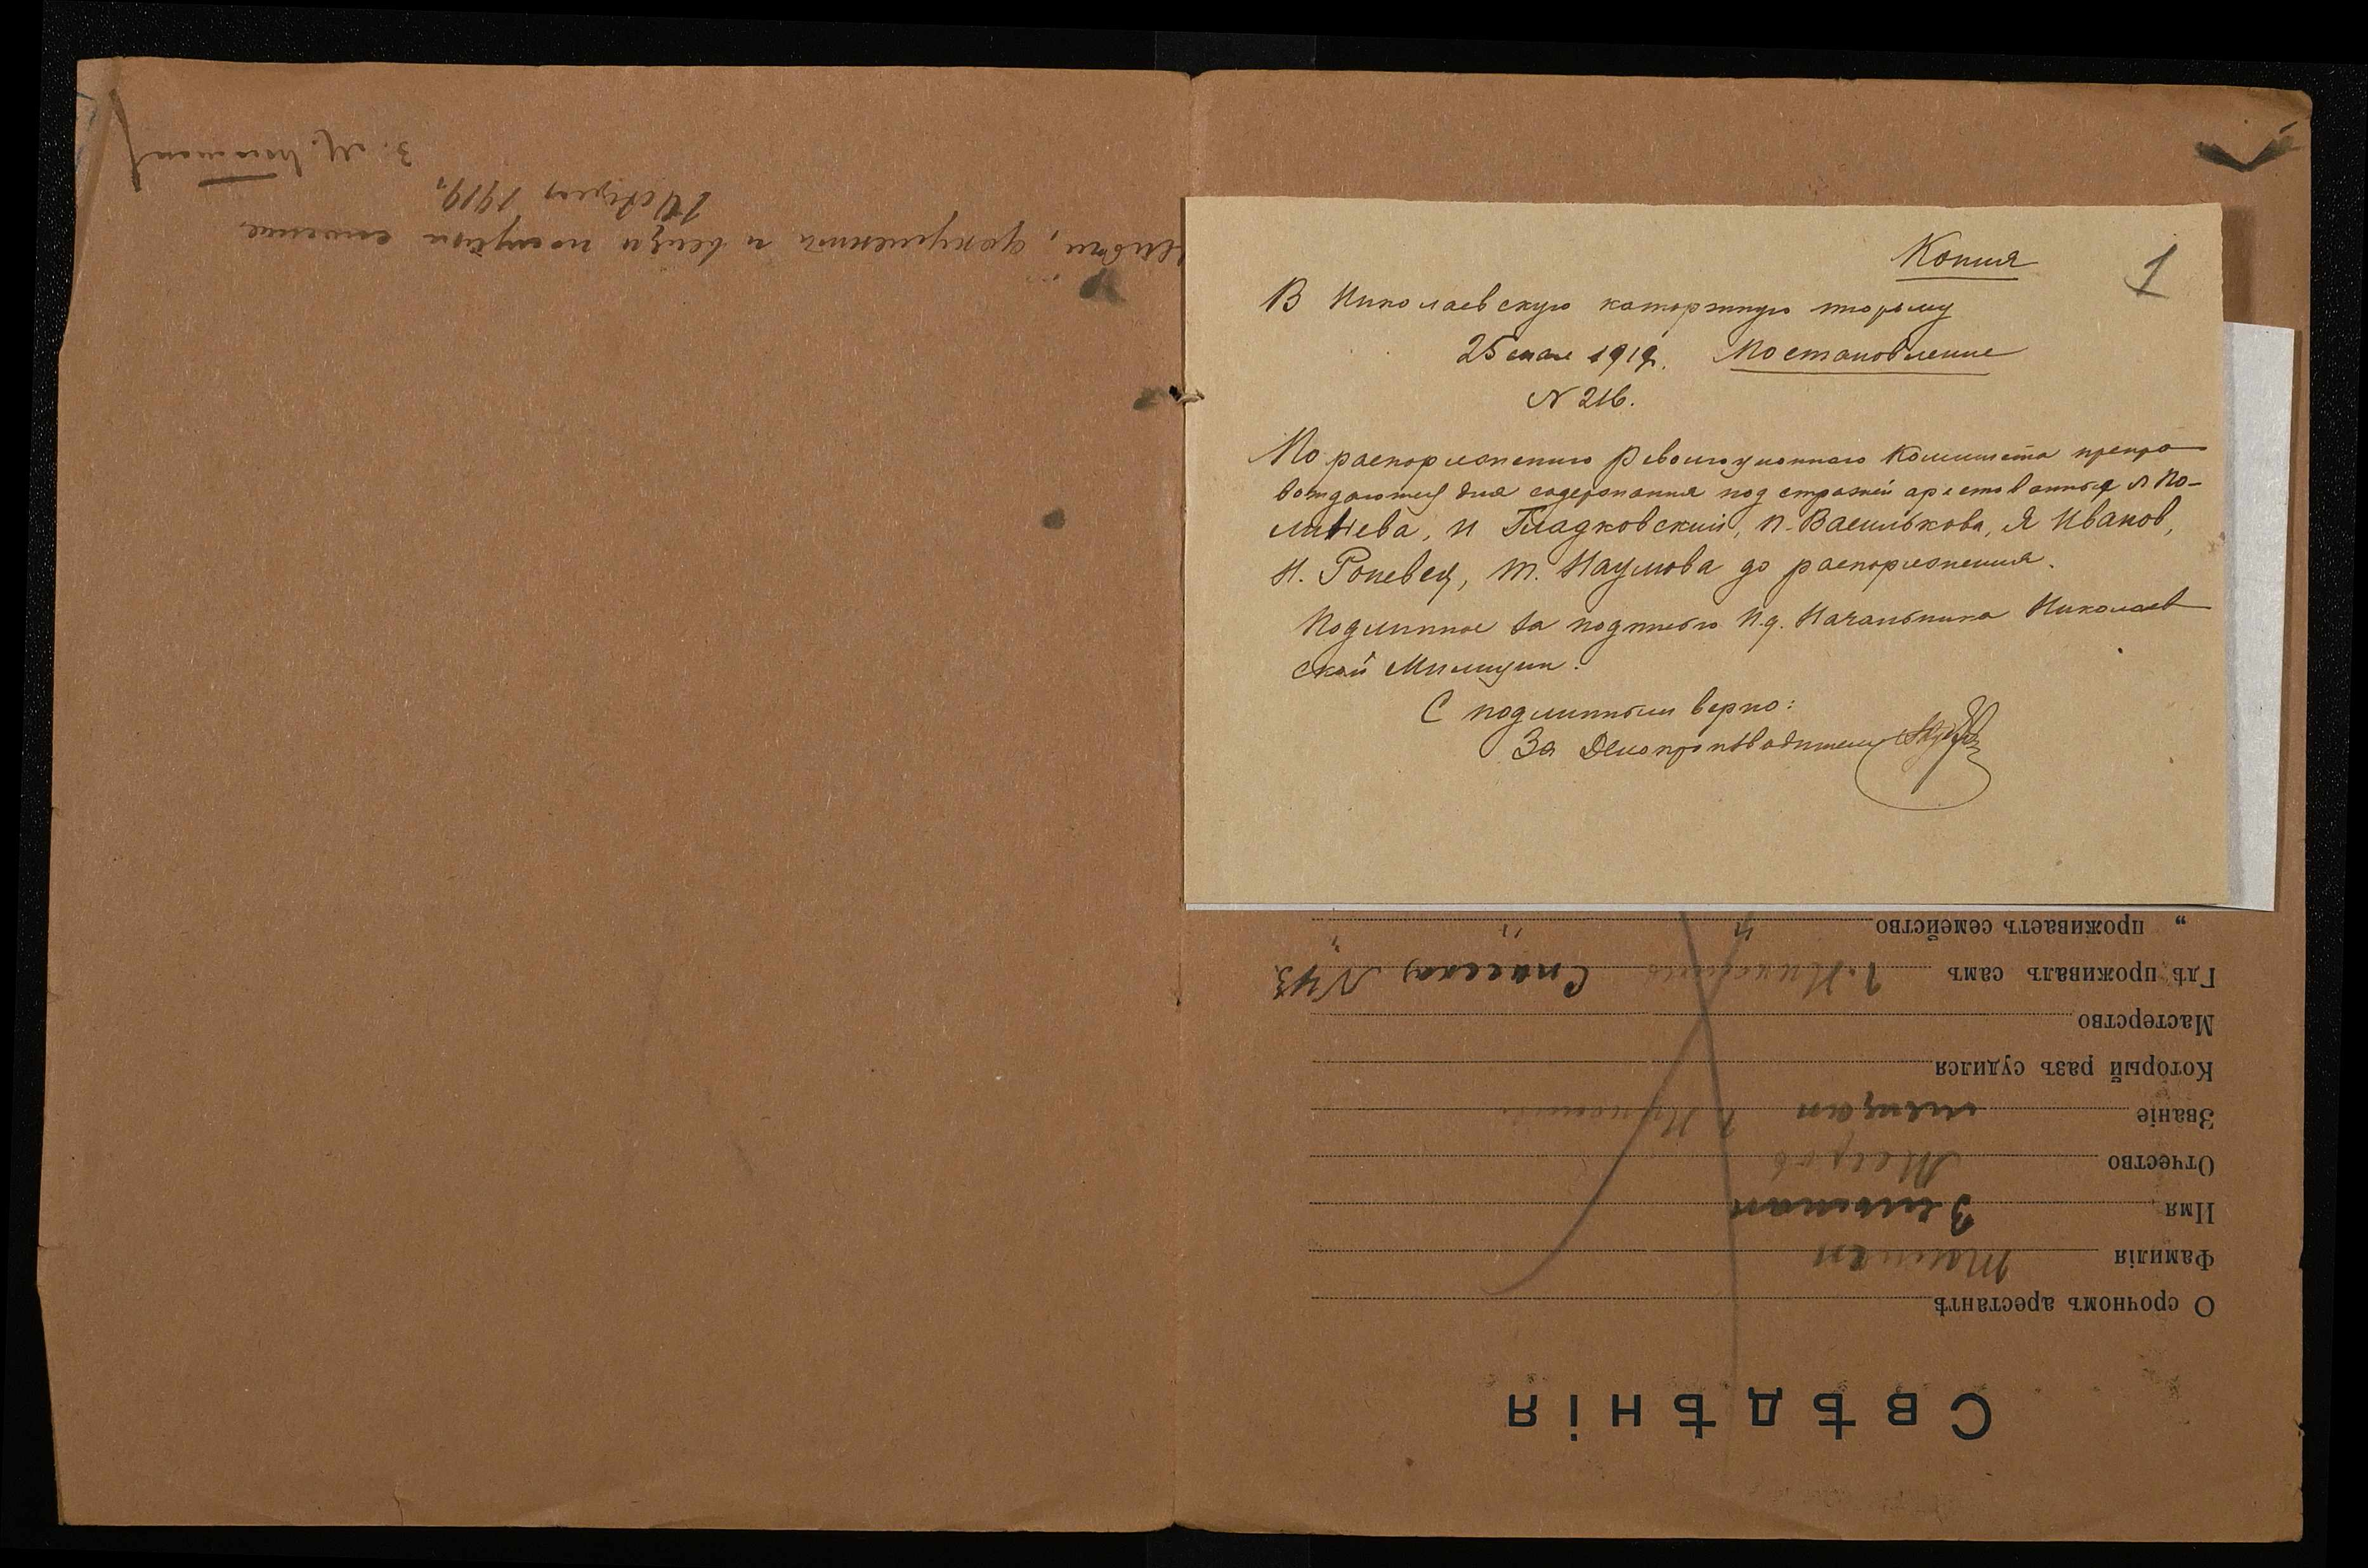 Копия
1
В Николаевскую каторжную тюрьму
25 мая 1919. Постановление
N 216.
По распоряжению Революционного Комитета препро
вождаются для содержания под стражей арестованные Л По-
ли
ева, И Гладковский, П. Василькова, Я Иванов,
Н. Роневец, Т. Наумова до распоряжения.
Подлинное за подписью И.д. Начальника Николаев
ской Милиции.
С подлинным верно:
За Делопроизводителя
Свѣдѣнія
О срочномъ арестантѣ
Фамилія
Имя Зельман
Отчество Мееров
Званіе мещан
Который разъ судился
Мастерство
Гдѣ проживалъ самъ г. Николаев Спасская N 43
„ проживаетъ семейство " " "
документы и вещи получил сполна
14 1919г.
З. М.